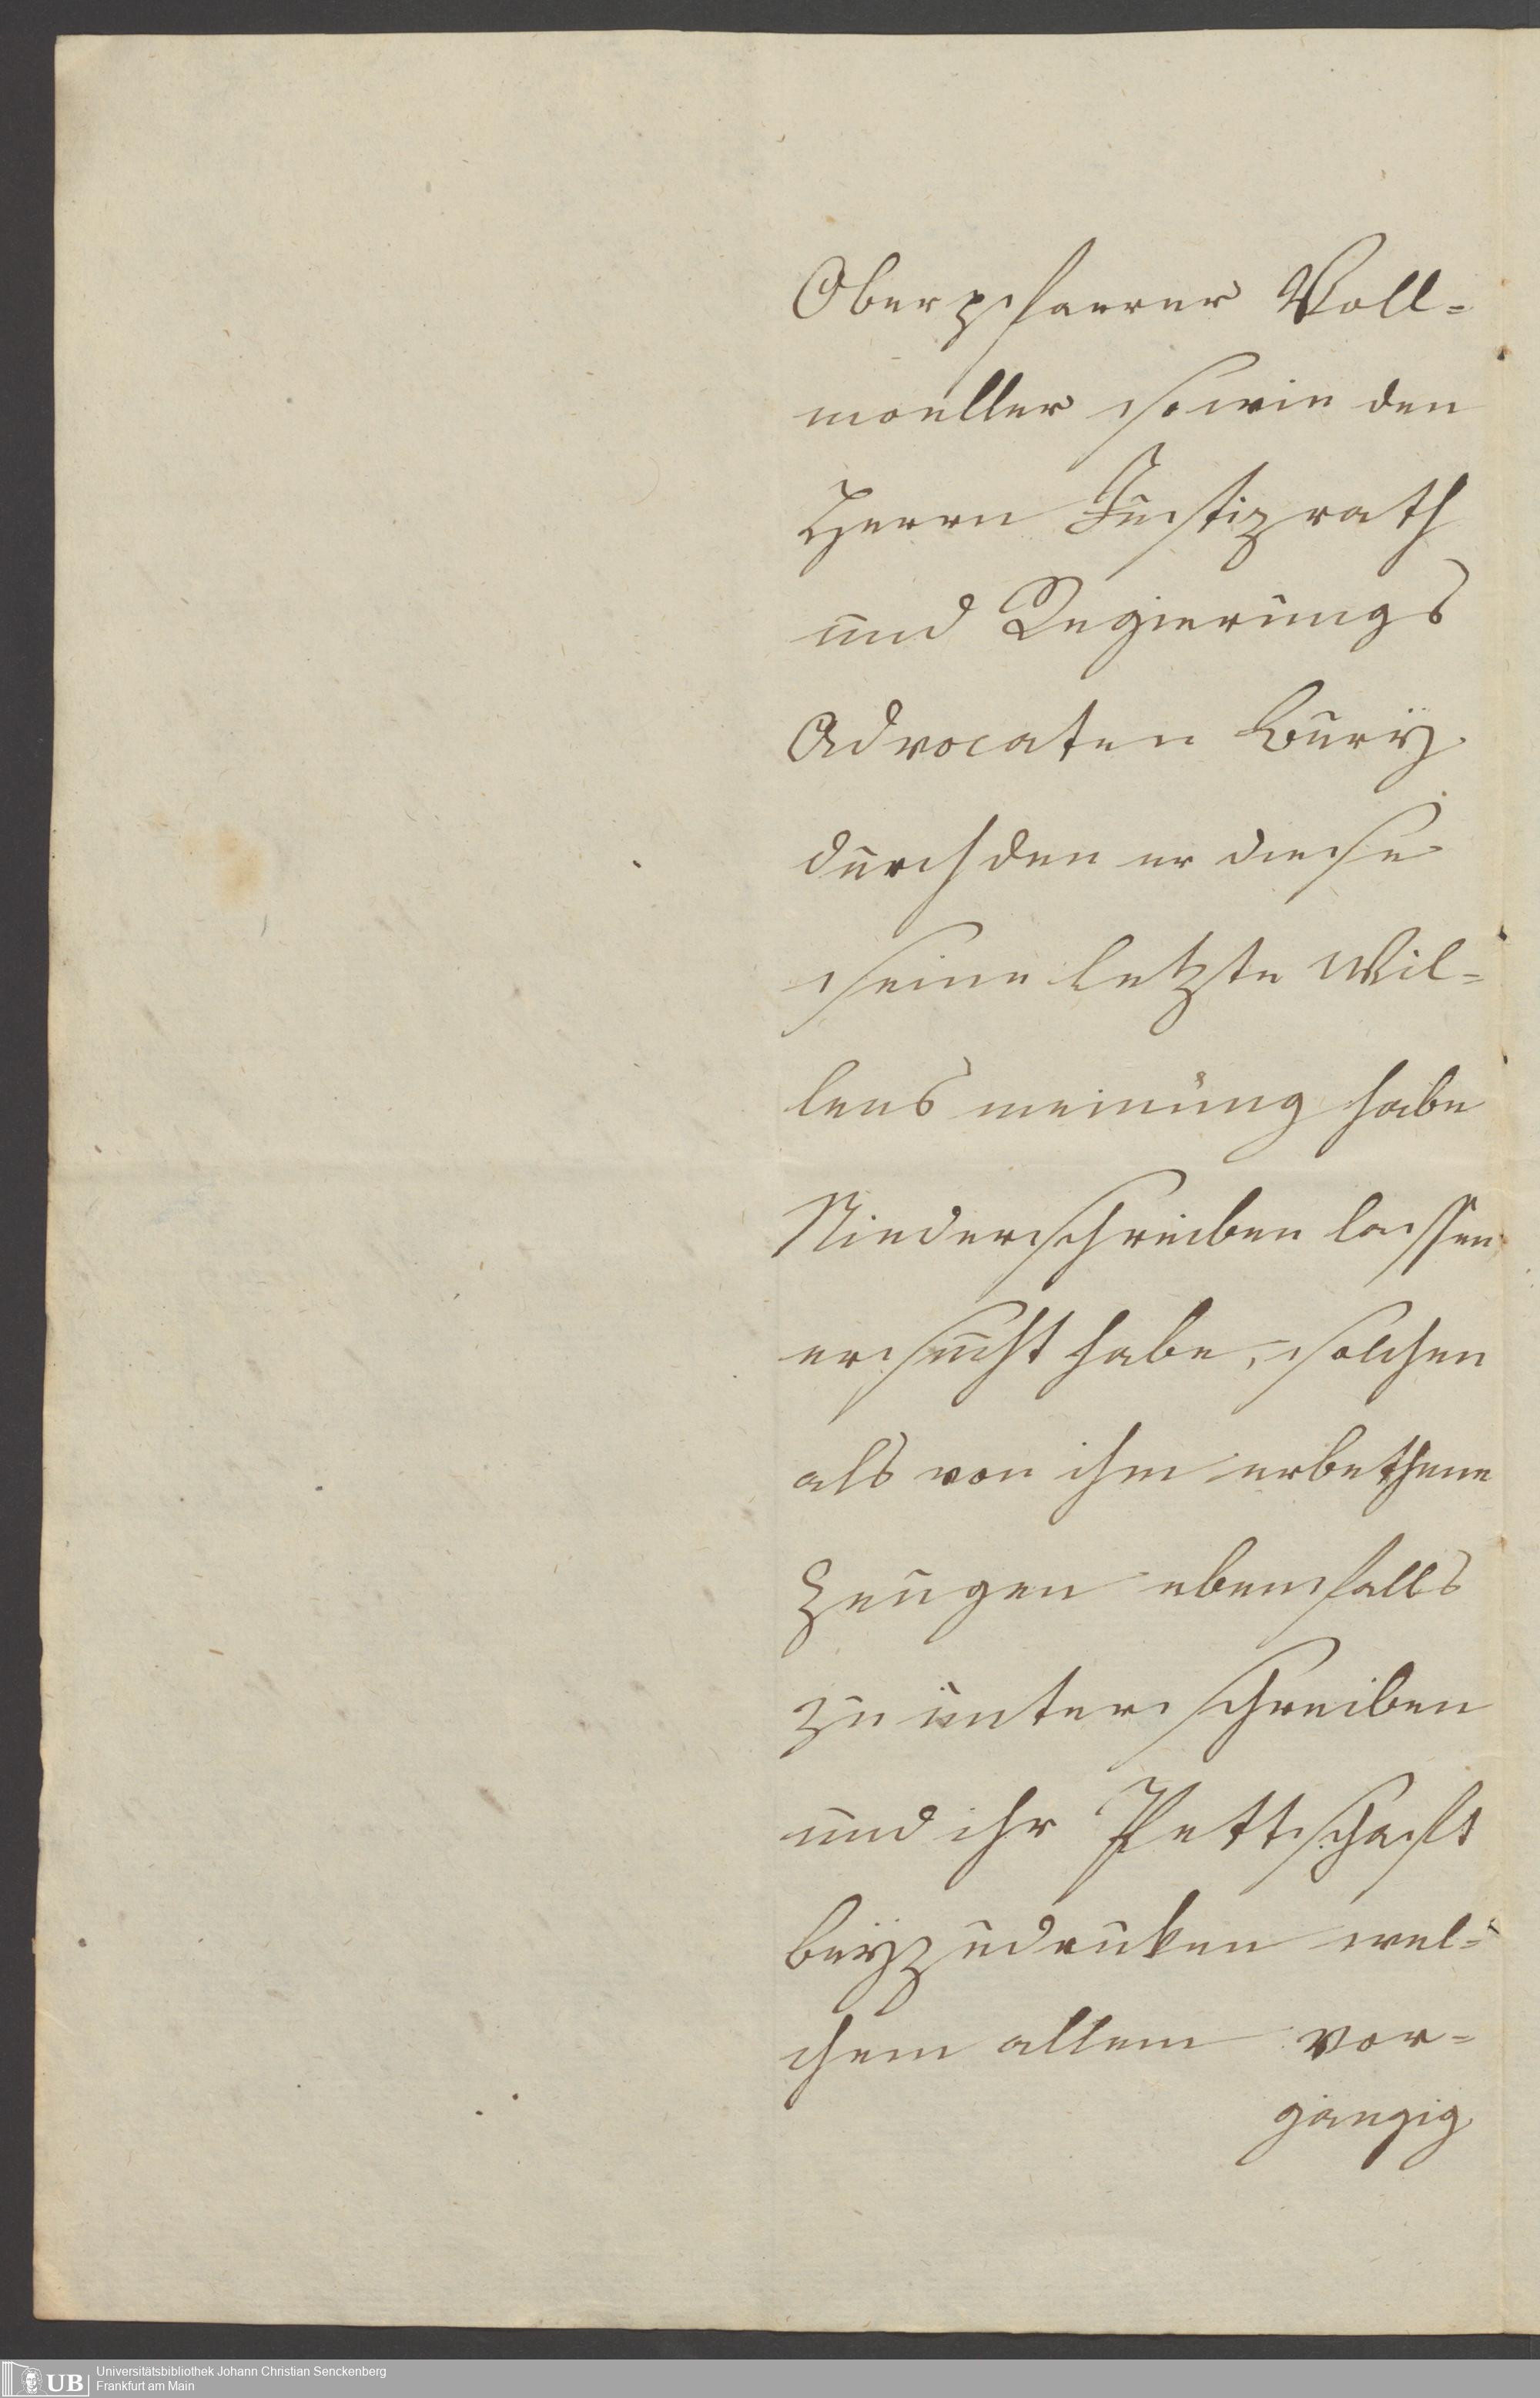 Oberpfarrer Voll=
moeller sowie den
Herrn Justizrath
und Regierungs
Advocaten Burÿ
durch den er diese
seine letzte Wil=
lens meinung habe
Niederschreiben lassen
ersucht habe, solchen
als von ihm erbethene
Zeugen ebenfalls
zu unterschreiben
und ihr Pettschaft
beÿzudruken wel=
chem allem vor=
gängig
UB Universitätsbibliothek Johann Christian Senckenberg
Frankfurt am Main